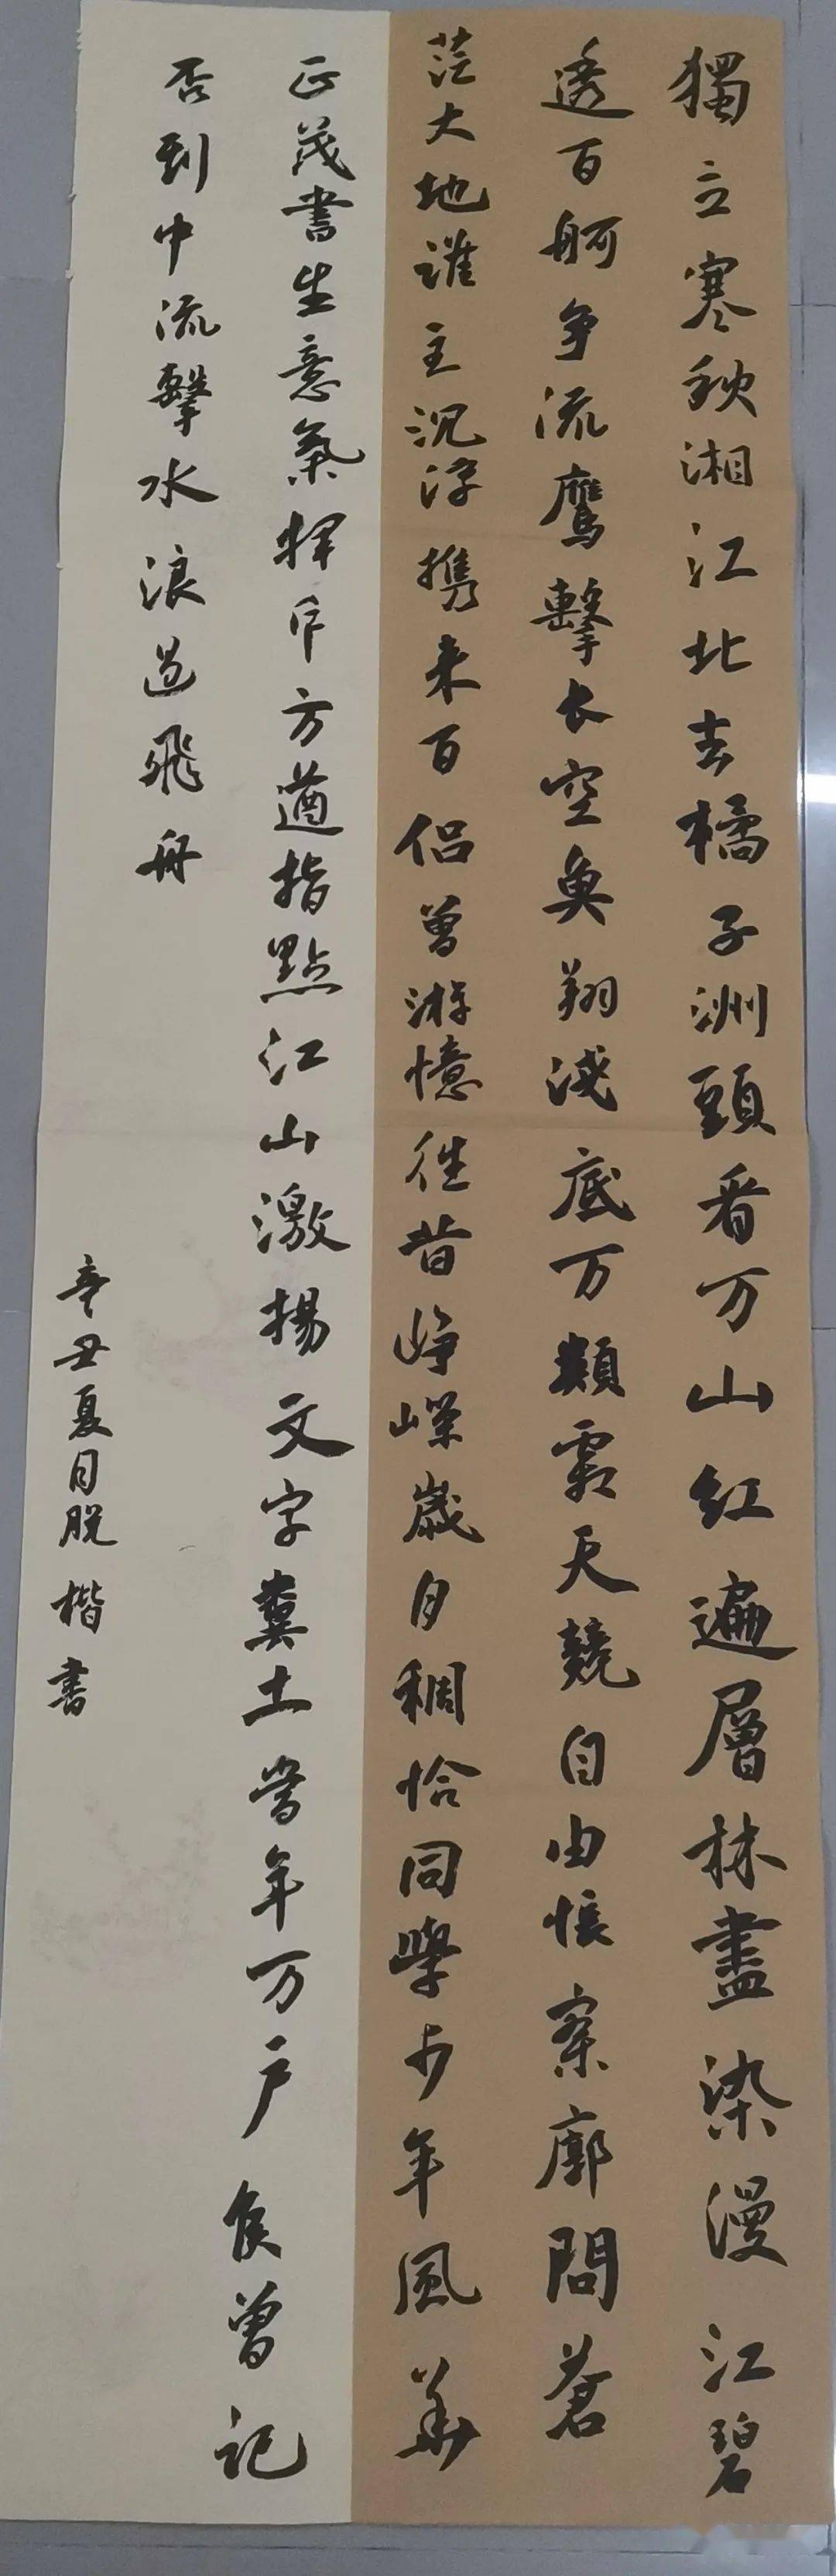 獨立寒秋湘江北去橘子洲頭看万山紅遍層林盡染漫江碧
透百舸争流鷹擊长空魚翔淺底万類霜天競自由悵寥廓問蒼
茫大地誰主沉浮携来百侣曾游憶往昔崢嶸歲月稠恰同學少年風華
正茂書生意氣揮斥方遒指點江山激揚文字糞土當年万户侯曾記
否到中流擊水浪遏飛舟
辛丑夏月脱楷書